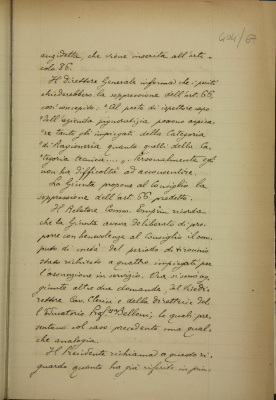 anzidetta, che viene inserita all'arti-
colo 86.
Il Direttore Generale informa che i periti
chiederebbero la soppressione dell'art. 66
così concepito: "Al posto di ispettore capo
"dell'azienda pignoratizia, possono aspira-
re tanto gli impiegati della Categoria
"di Ragioneria quanto quelli della Ca-
"tegoria tecnica...„ Personalmente egli
non ha difficoltà ad acconsentire.
La Giunta propone al Consiglio la
soppressione dell'art. 66 predetto.
Il Relatore Comm. ricorda
che la Giunta aveva deliberato di pro-
porre con benevolenza al Consiglio il com-
puto di metà del periodo di tirocinio
stato richiesto a quattro impiegati per
l'assunzione in servizio. Ora si sono ag-
giunte altre due domande, del Vice Di-
rettore Cav. e della direttrice del-
l'Educatorio Prof.ssa Belloni, le quali pre-
sentano col caso precedente una qual-
che analogia.
Il Presidente richiama a questo ri-
guardo quanto ha già riferito in prin-